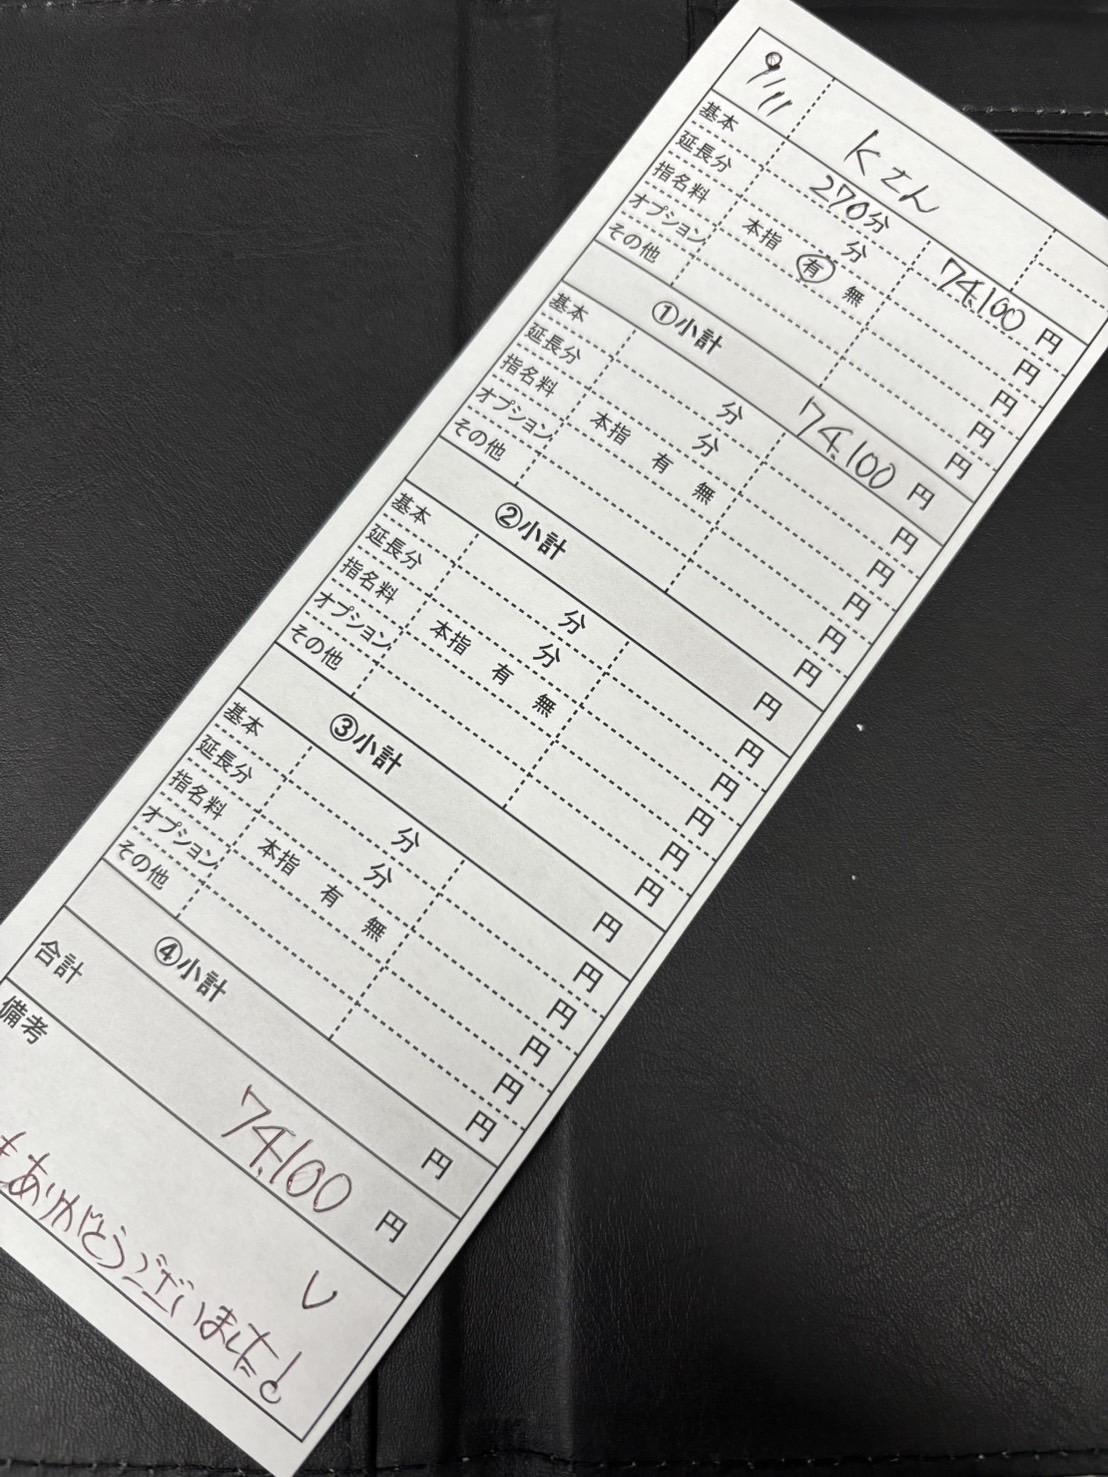 9/11 Kさん
基本 270分 74,100円
延長分 分 円
指名料 本指 有 無 円
オプション 円
その他 円
①小計 74,100円
基本 分 円
延長分 分 円
指名料 本指 有 無 円
オプション 円
その他 円
②小計 円
基本 分 円
延長分 分 円
指名料 本指 有 無 円
オプション 円
その他 円
③小計 円
基本 分 円
延長分 分 円
指名料 本指 有 無 円
オプション 円
その他 円
④小計 円
合計 74,100円
備考
もありがとうございました!